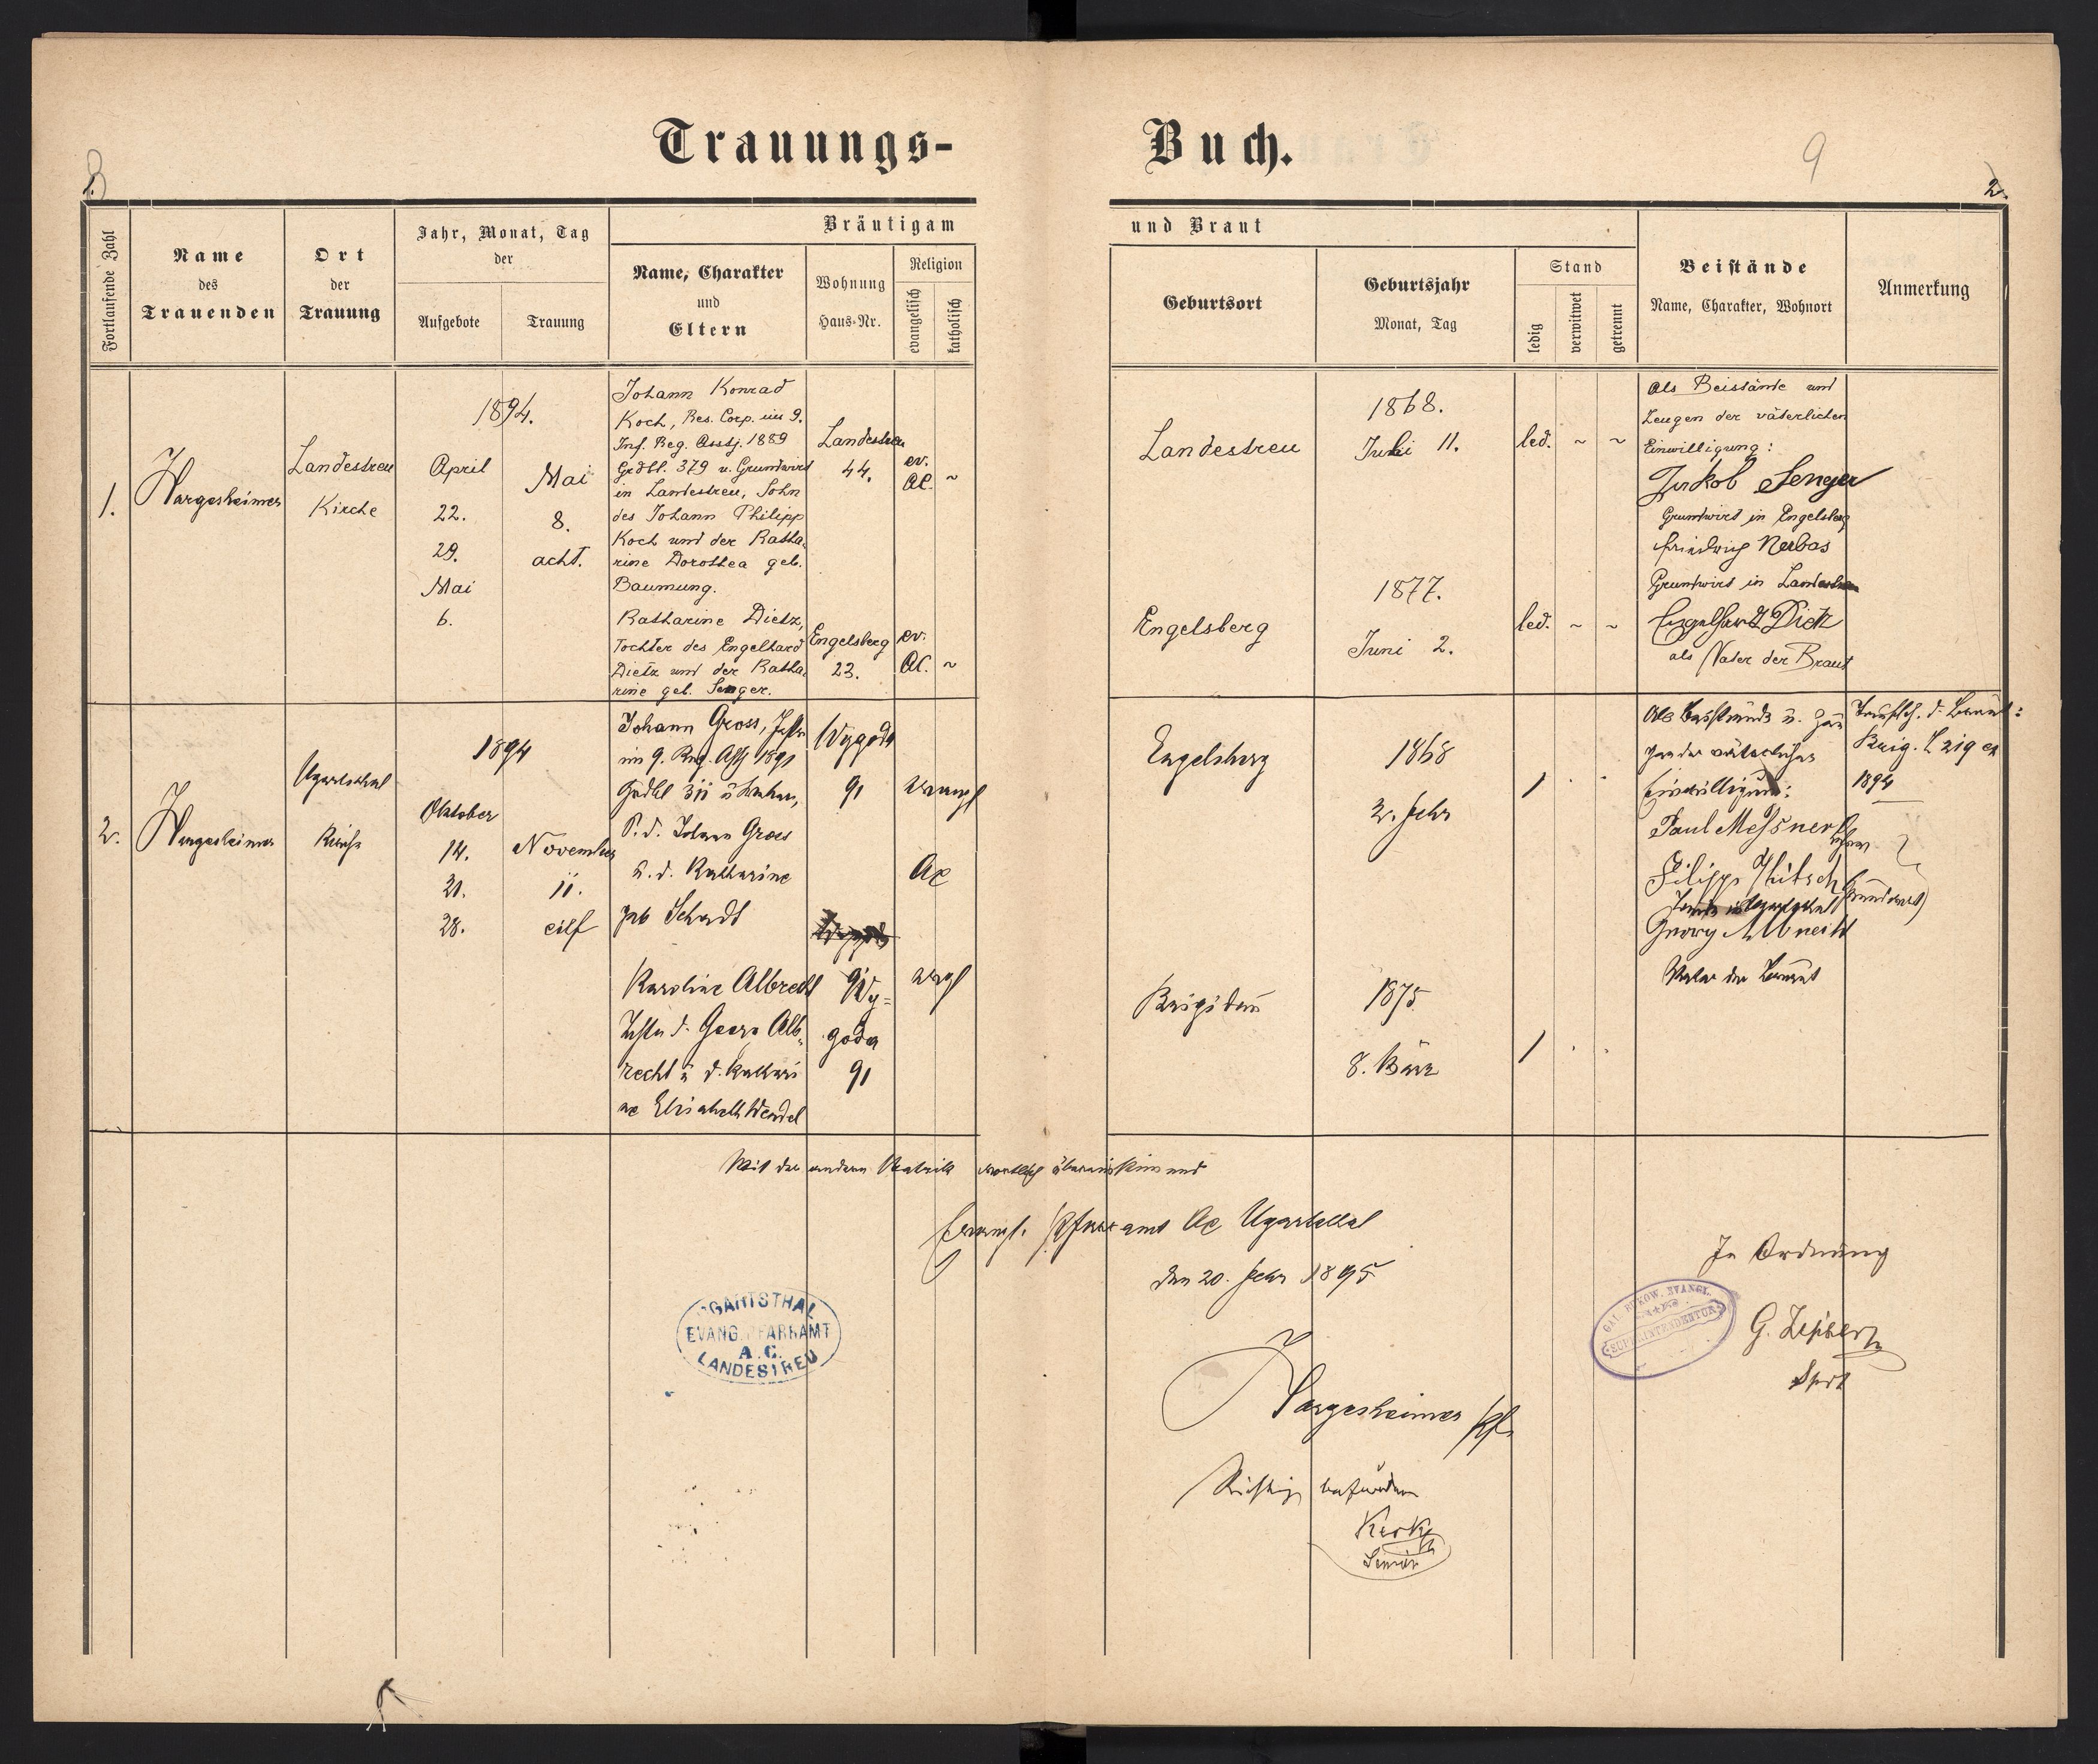 Trauungs-
Buch.
9
1.
2.
Fortlaufende Zahl
Name
des
Trauenden
Ort
der
Trauung
Jahr, Monat, Tag
der
Aufgebote
Trauung
Bräutigam
Name, Charakter
und
Eltern
Wohnung
Haus-Nr.
Religion
evangelisch
katholisch
und Braut
Geburtsort
Geburtsjahr
Monat, Tag
Stand
ledig
verwitwet
getrennt
Beistände
Name, Charakter, Wohnort
Anmerkung
1.
Hargesheimer
Landestreu
Kirche
1894.
April
22.
29.
Mai
6.
Mai
8.
acht.
Johann Konrad
Koch, Res. Corp. im 9.
Inf. Reg. Asstj. 1889
Grdbl. 379 u. Grundwirt
in Landestreu, Sohn
des Johann Philipp
Koch und der Katha-
rine Dorothea geb.
Baumung.
Landestreu
44.
ev.
AC.
~
Katharine Dietz,
Tochter des Engelhard
Dietz und der Katha-
rine geb. Senger.
Engelsberg
23.
ev.
AC.
~
Landestreu
1868.
Juli 11.
led. ~ ~
Engelsberg
1877.
Juni 2.
led. ~ ~
Als Beistände und
Zeugen der väterlichen
Einwilligung:
Jakob Senger
Grundwirt in Engelsberg
Friedrich Nerbas
Grundwirt in Landestreu
Engelhard Dietz
als Vater der Braut
2.
Hargesheimer
Ugartsthal
Kirche
1894
Oktober
14.
21.
28.
November
11.
eilf
Johann Gross,
im 9. Reg. 1891
Grdbl 311
S. d. Johann Gross
u. d. Katharine
geb Schadt
Wygoda
91
evangl
AC
Karoline Albrecht
Tochter d. Georg Alb-
recht u. d. Kathari
ne Elisabeth Wendel
Wy-
goda
91
evangl
Engelsberg
1868
2. Febr
1 . .
Brigidau
1875
8. März
1 . .
Als Beistände u. Zeu
gen der väterlichen
Einwilligung:
Paul Messner
Filipp Hütsch
Georg Albrecht
Vater der Braut
Taufsch. d. Braut:
Brig. Z 219 ex
1894
Mit der andern Matrik wörtlich übereinstimmend
Evangl. Pfarramt AC Ugartsthal
den 20. Febr 1895
UGARTSTHAL
EVANG. PFARRAMT
A. C.
LANDESTREU
Hargesheimer Pf.
Richtig befunden
Senior
In Ordnung
GAL. BUKOW. EVANGL.
SUPERINTENDENTUR
Sprt